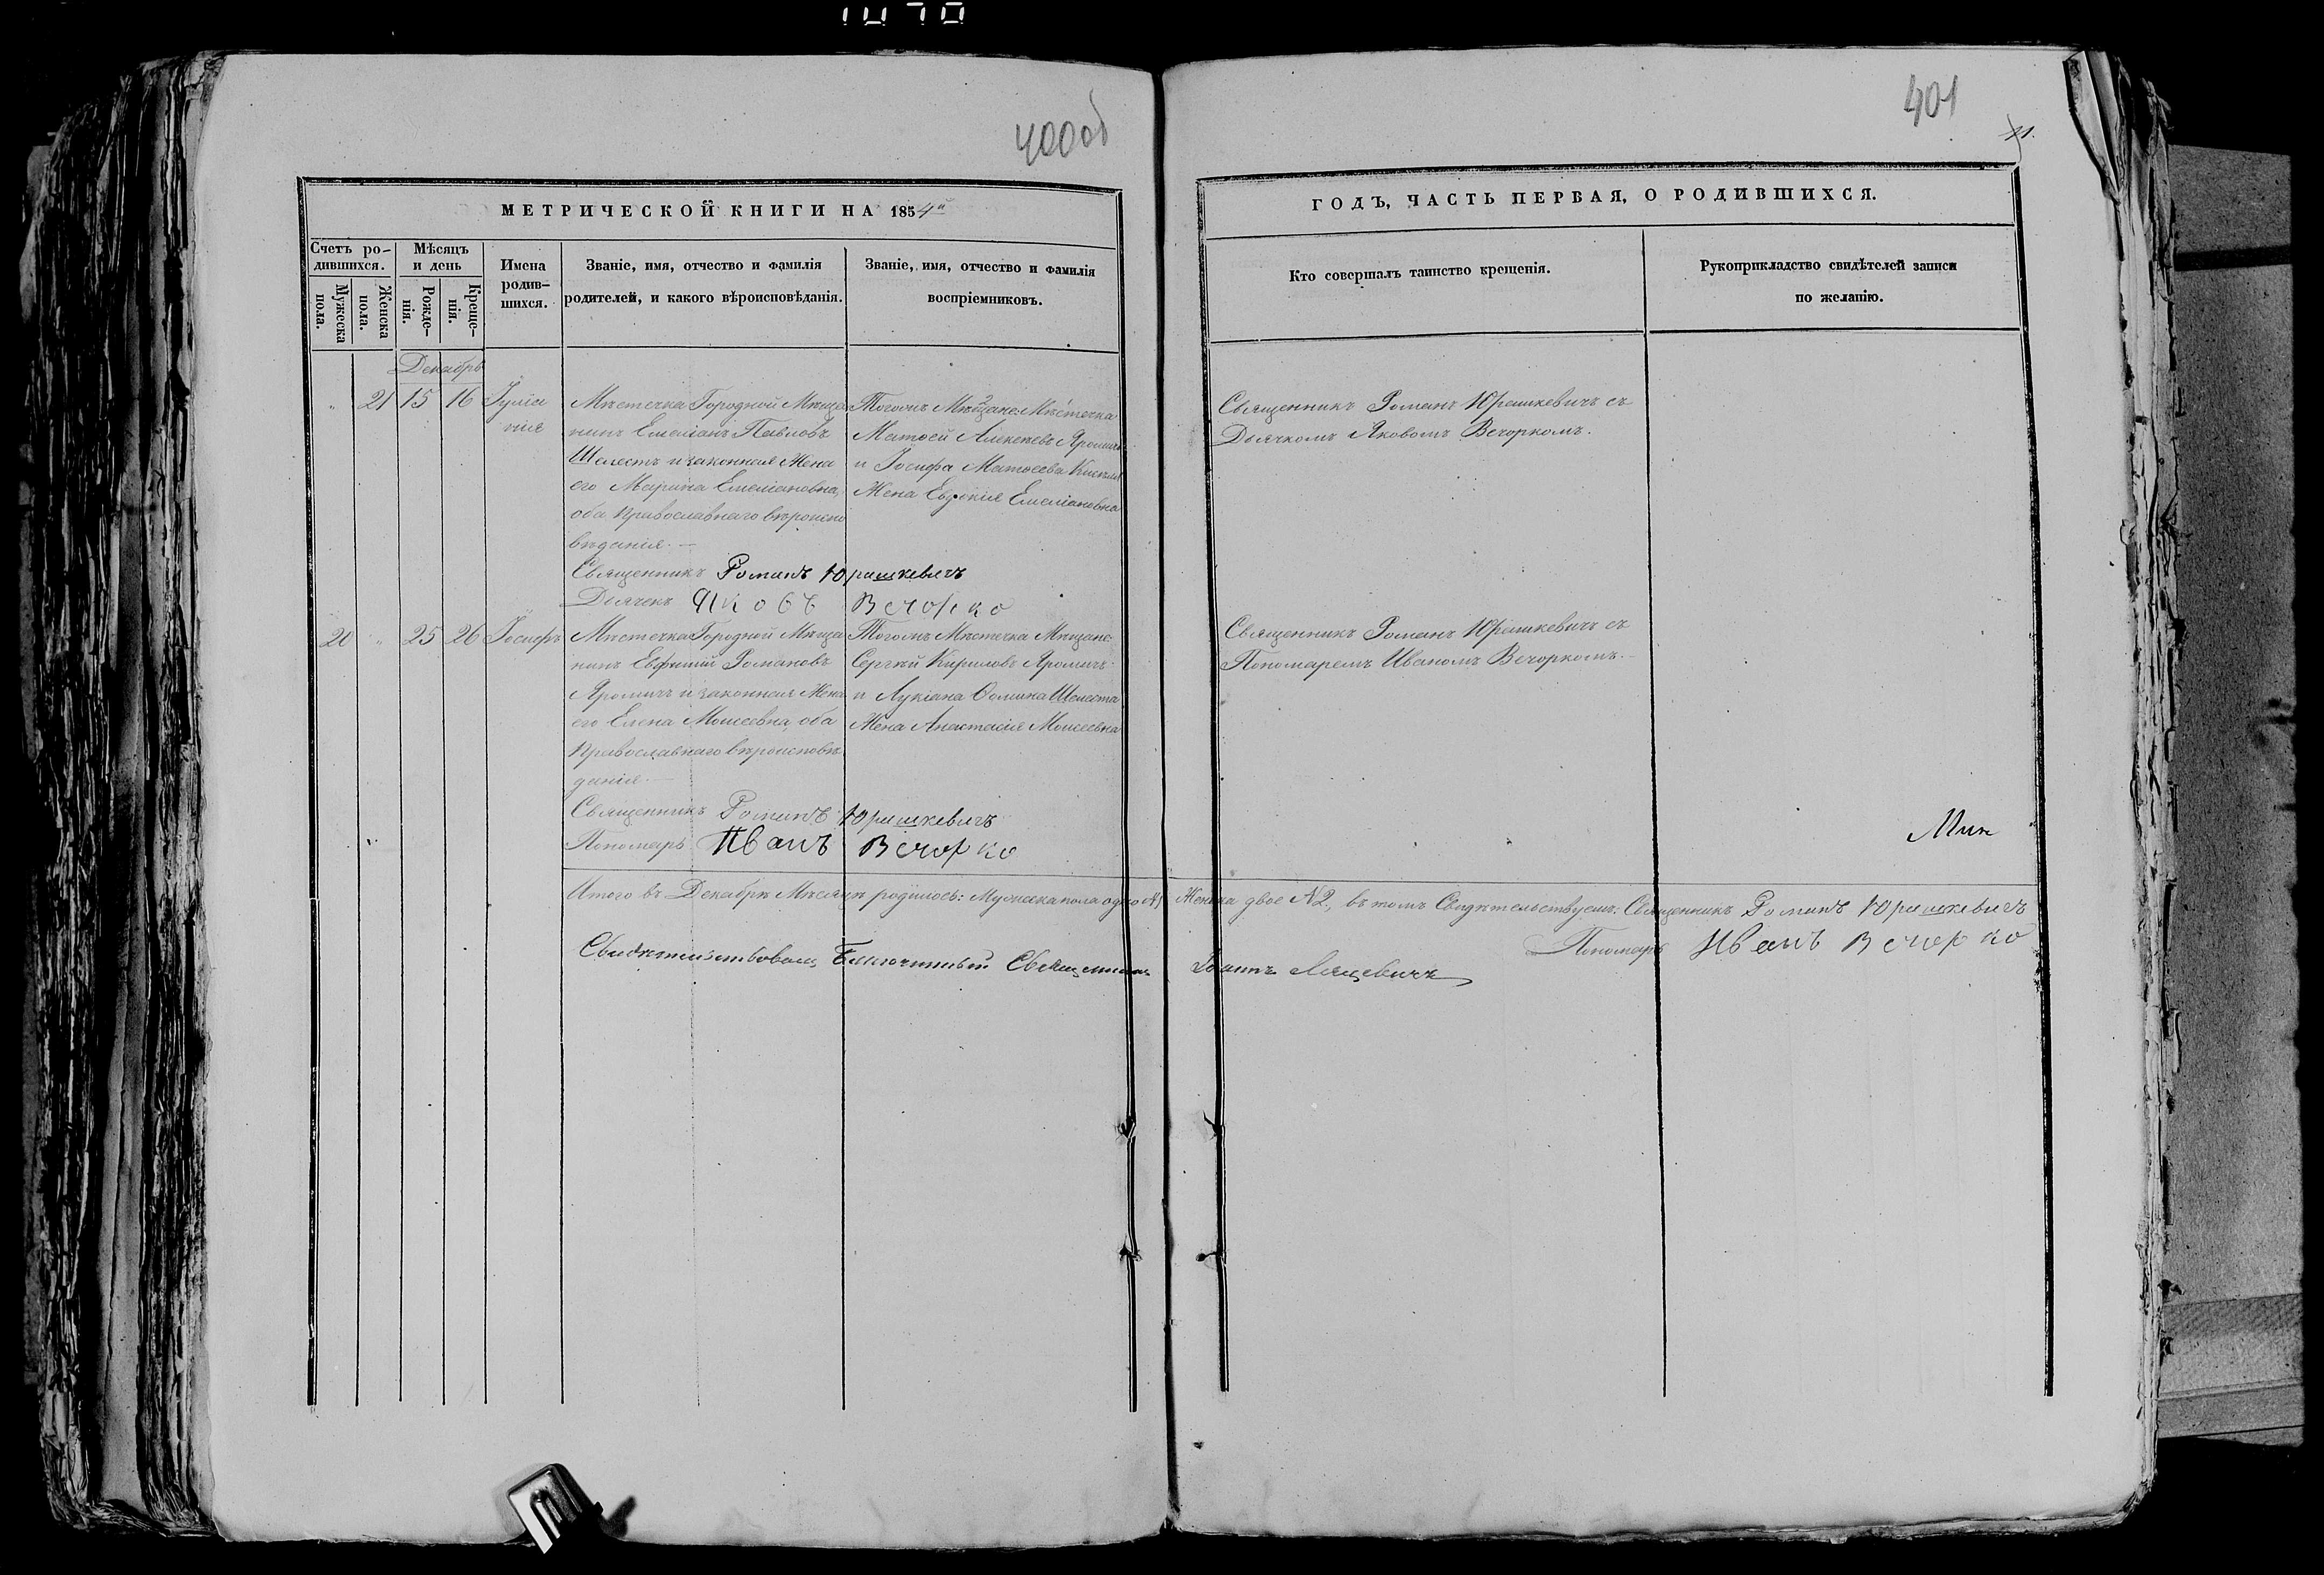 1070
400 об
401
11.
МЕТРИЧЕСКОЙ КНИГИ НА 1854й
ГОДЪ, ЧАСТЬ ПЕРВАЯ, О РОДИВШИХСЯ.
Счетъ ро-
дившихся.
Мужеска
пола.
Женска
пола.
Мѣсяцъ
и день
Рожде-
нія.
Креще-
нія.
Имена
родив-
шихся.
Званіе, имя, отчество и фамилія
родителей, и какого вѣроисповѣданія.
Званіе, имя, отчество и фамилія
воспріемниковъ.
Кто совершалъ таинство крещенія.
Рукоприкладство свидѣтелей записи
по желанію.
Декабрь
„ 21 15 16
Іуліа
нія
Мѣстечка Городной Мѣща
нинъ Емеліанъ Павловъ
Шелестъ и законная Жена
его Марина Емеліановна,
оба Православнаго вѣроиспо
вѣданія. —
Тогожъ Мѣщане Мѣстечка
Матѳей Алексѣевъ Яромичъ
и Іосифа Матѳеева
Жена Евдокія Емеліановна
Священникъ Романъ Юрашкевичъ съ
Дьячкомъ Яковомъ Вечоркомъ.
Священникъ Романъ Юрашкевичъ
Дьячекъ Яковъ Вечорко
20 „ 25 26
Іосифъ
Мѣстечка Городной Мѣща
нинъ Евфимій Романовъ
Яромичъ и законная Жена
его Елена Моисеевна, оба
Православнаго вѣроисповѣ
данія. —
Тогожъ Мѣстечка Мѣщане
Сергѣй Кириловъ Яромичъ
и Лукіана Ѳомина Шелеста
Жена Анастасія Моисеевна
Священникъ Романъ Юрашкевичъ съ
Пономаремъ Иваномъ Вечоркомъ. —
Священникъ Романъ Юрашкевичъ
Пономарь Иванъ Вечорко
Мин
Итого въ Декабрѣ Мѣсяцѣ родилось: Мужеска пола одно №1 Женска двое №2, въ томъ Свидѣтельствуемъ: Священникъ Романъ Юрашкевичъ
Пономарь Иванъ Вечорко
Свидѣтельствовалъ Благочинный Священникъ Іоаннъ Лящевичъ